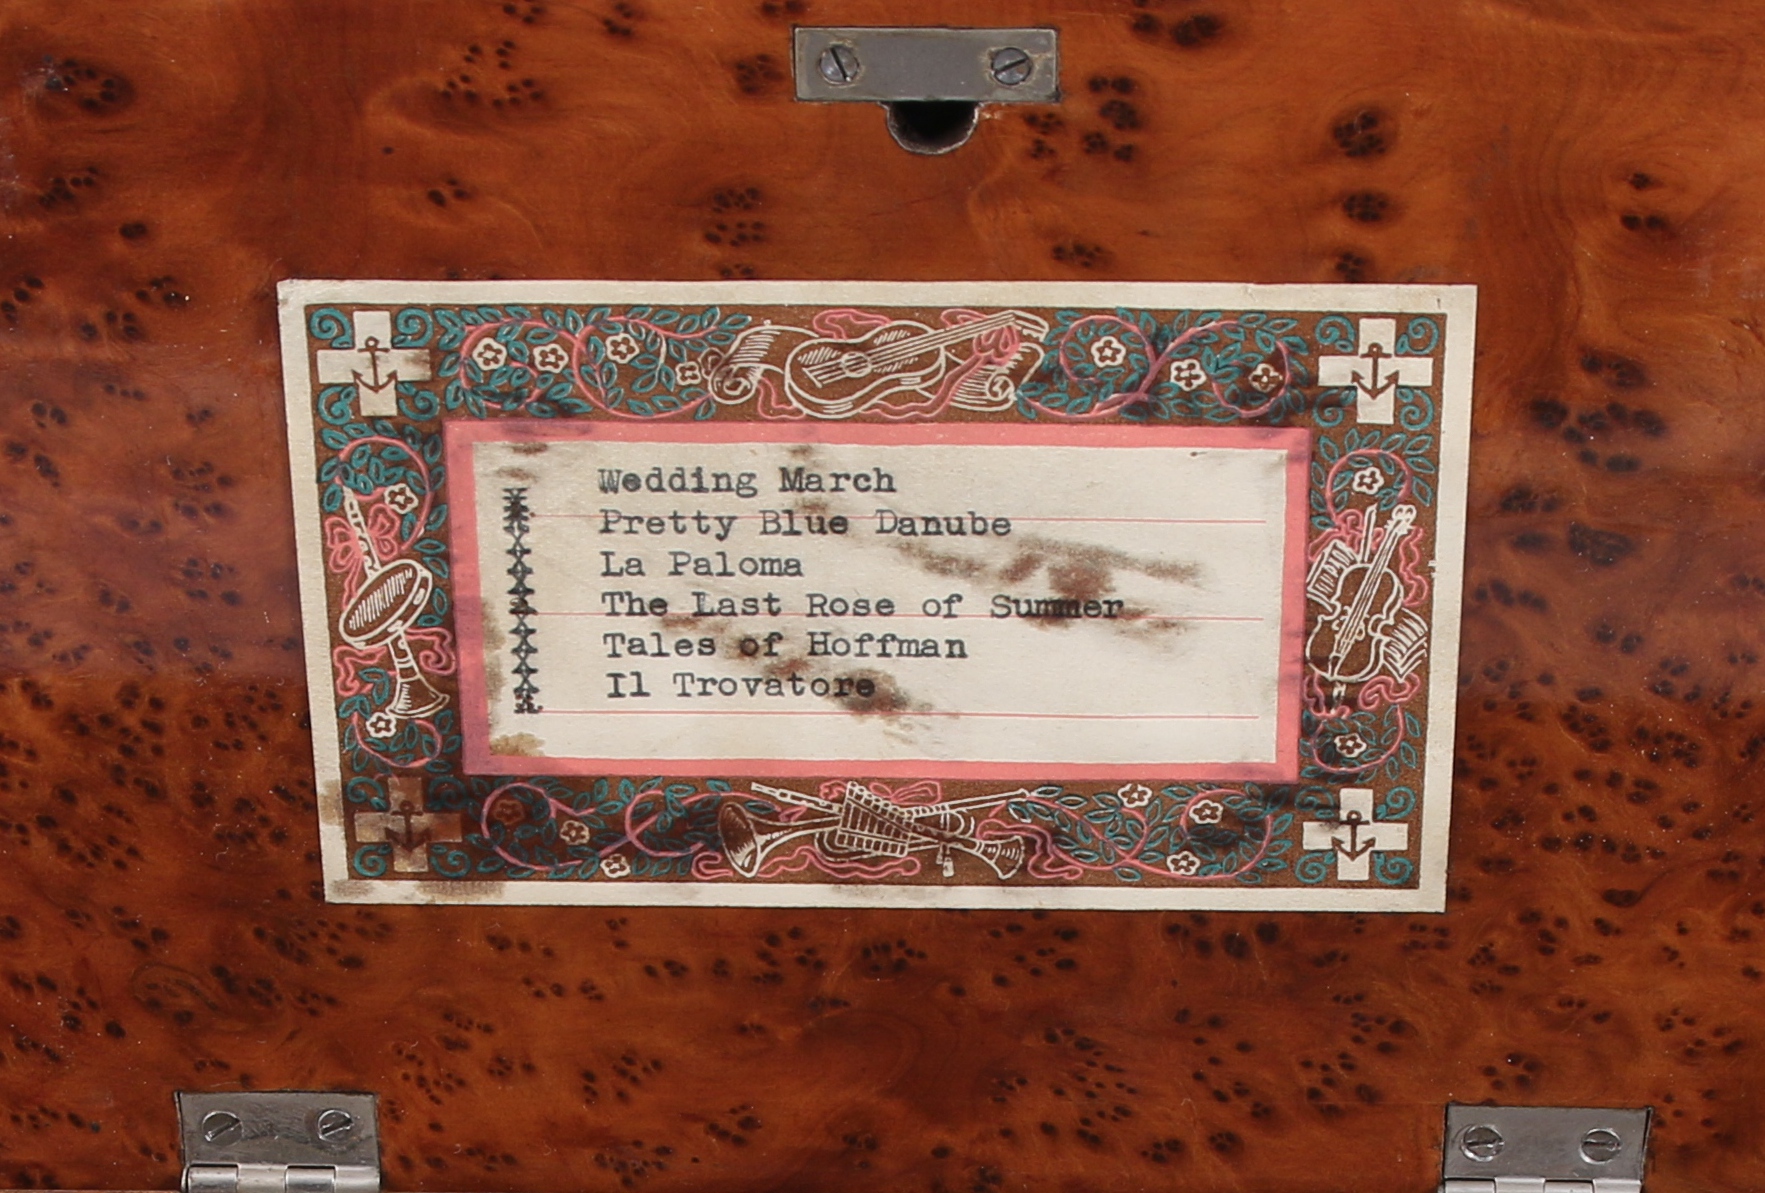 Wedding March
Pretty Blue Danube
La Paloma
The Last Rose of Summer
Tales of Hoffman
Il Trovatore